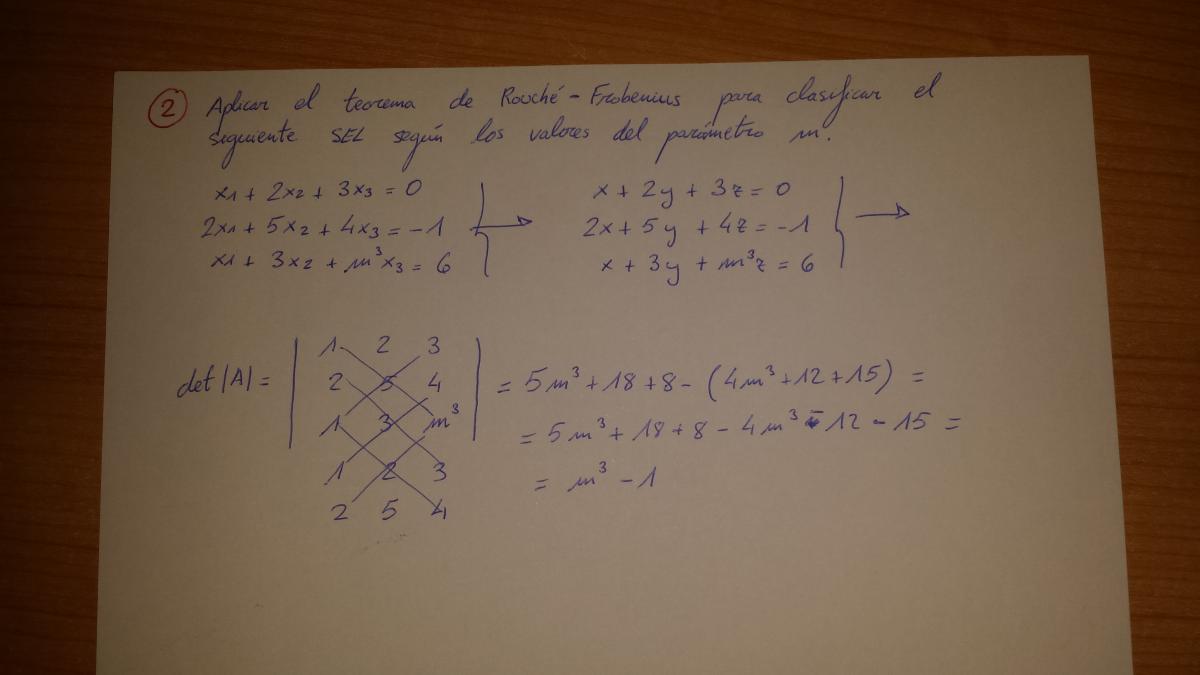 2 Aplicar el teorema de Rouché-Frobenius para clasificar el
siguiente SEL según los valores del parámetro m.
x1 + 2x2 + 3x3 = 0
2x1 + 5x2 + 4x3 = -1
x1 + 3x2 + m³x3 = 6
x + 2y + 3z = 0
2x + 5y + 4z = -1
x + 3y + m³z = 6
det |A| =
1 2 3
2 5 4
1 3 m³
1 2 3
2 5 4
= 5m³ + 18 + 8 - (4m³ + 12 + 15) =
= 5m³ + 18 + 8 - 4m³ - 12 - 15 =
= m³ - 1